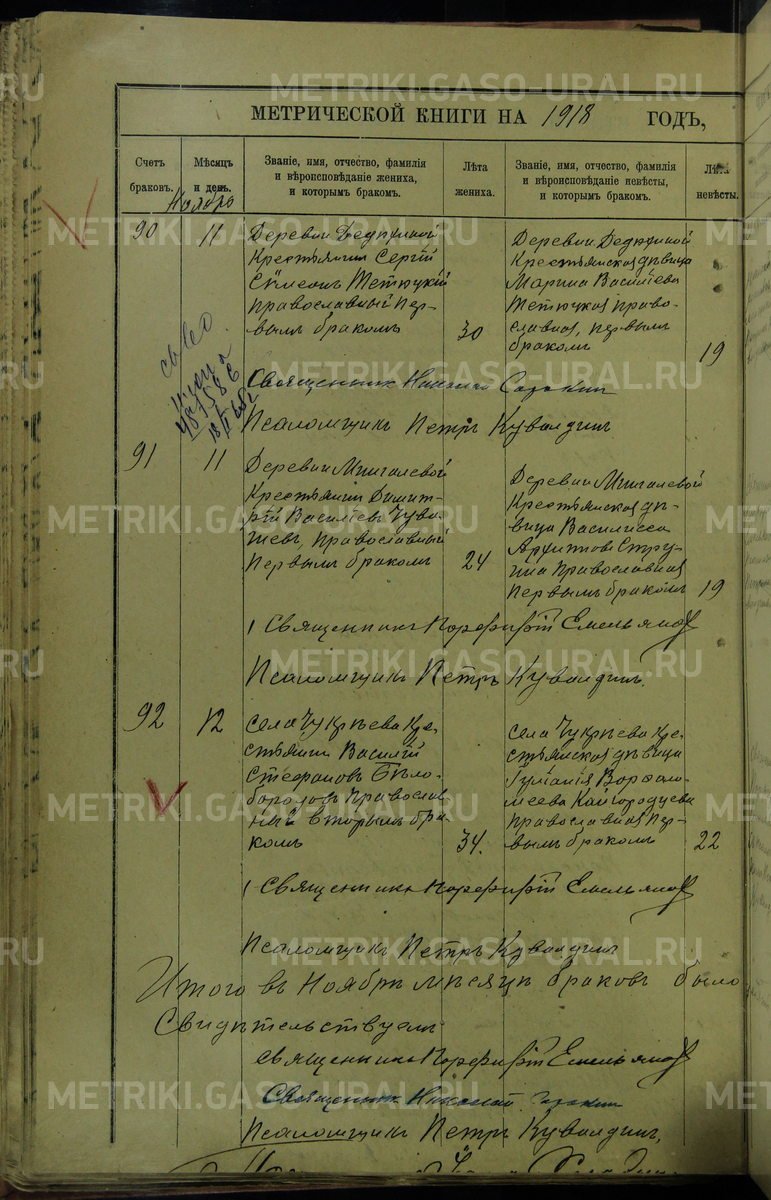 METRIKI.GASO-URAL.RU
МЕТРИЧЕСКОЙ КНИГИ НА 1918 ГОДЪ,
Счетъ браковъ.
Мѣсяцъ и день.
Званіе, имя, отчество, фамилія и вѣроисповѣданіе жениха, и которымъ бракомъ.
Лѣта жениха.
Званіе, имя, отчество, фамилія и вѣроисповѣданіе невѣсты, и которымъ бракомъ.
Лѣта невѣсты.
Ноябрь
90
11
Деревни
Крестьянинъ Сергій
Православный пер-
вымъ бракомъ
30
Деревни
Крестьянская дѣвица
Марина Васильева
право-
славная, первымъ
бракомъ
19
Священникъ Николай
Псаломщикъ Петръ Кувалдинъ
91
11
Деревни Мингалевой
Крестьянинъ Димит-
рій Васильевъ Чува-
шевъ, православный
первымъ бракомъ
24
Деревни Мингалевой
Крестьянская дѣ-
вица Василисса
православная
первымъ бракомъ
19
Священникъ Порфирій Емельяновъ
Псаломщикъ Петръ Кувалдинъ.
92
12
Села Чукрѣева Кре-
стьянинъ Василій
Стефановъ Бѣло-
бородовъ православ
ный вторымъ бра
комъ
34.
Села Чукрѣева Кре-
стьянская дѣвица
Варфоло-
меева Кайгородцева
православная пер-
вымъ бракомъ
22
Священникъ Порфирій Емельяновъ
Псаломщикъ Петръ Кувалдинъ
Итого въ Ноябрѣ мѣсяцѣ браковъ было
Свидѣтельствуемъ
Священникъ Порфирій Емельяновъ
Священникъ Николай
Псаломщикъ Петръ Кувалдинъ.